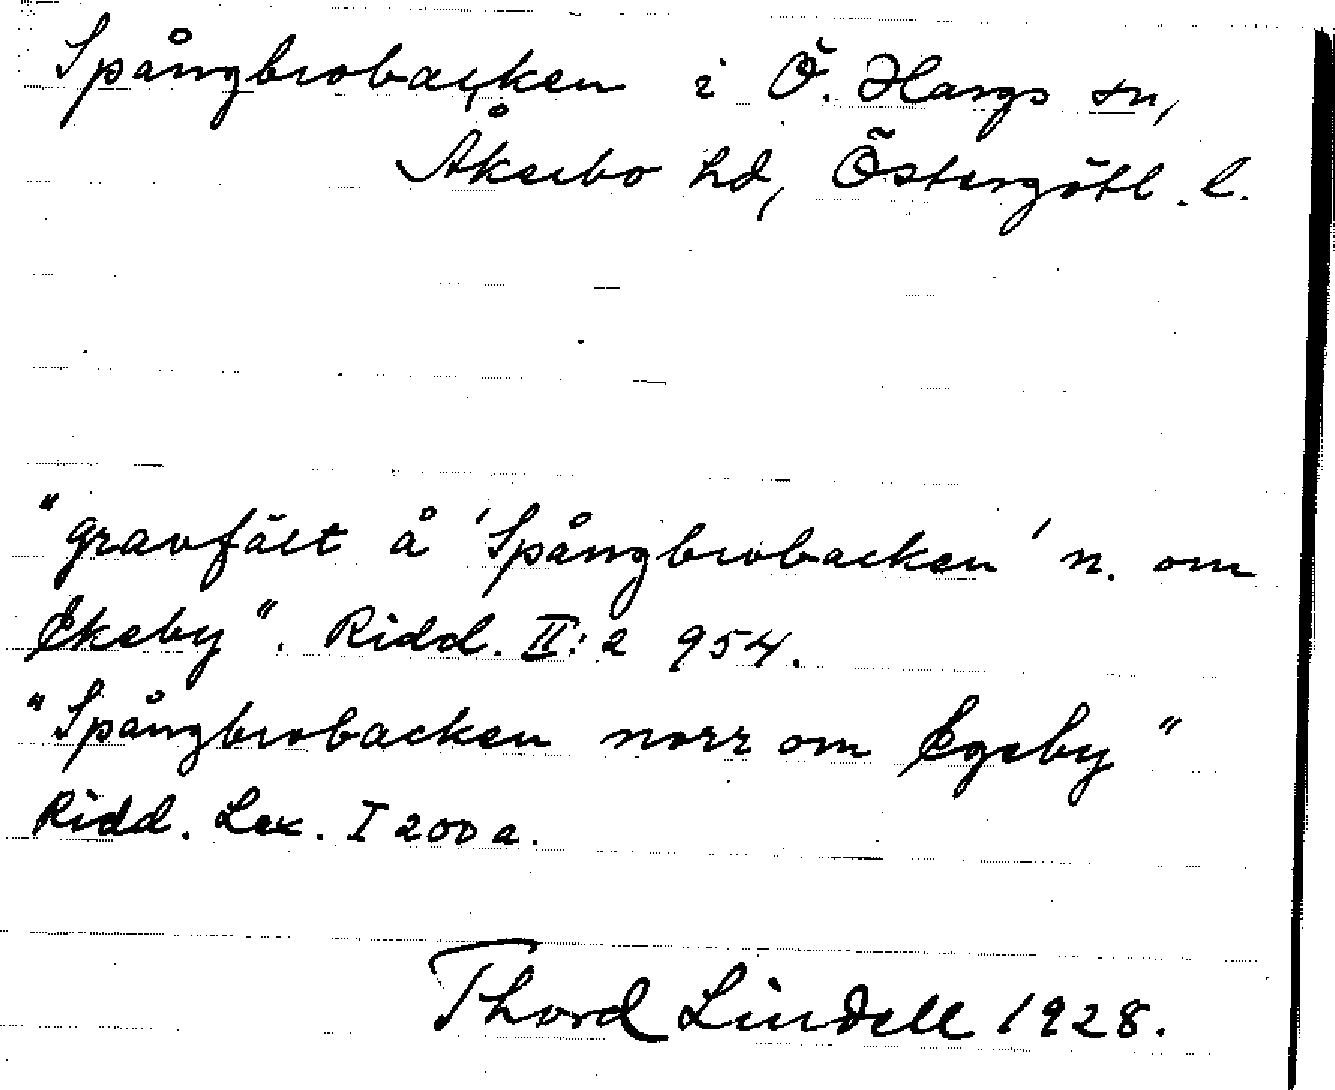 Spångbrobacken i Ö. Hargs sn,
Åkerbo hd, Östergötl. l.
"gravfält å 'Spångbrobacken' n. om
Ekeby". Ridd. II:2 954.
"Spångbrobacken norr om Egeby"
Ridd. Lex. I 200 a.
Thord Lindell 1928.